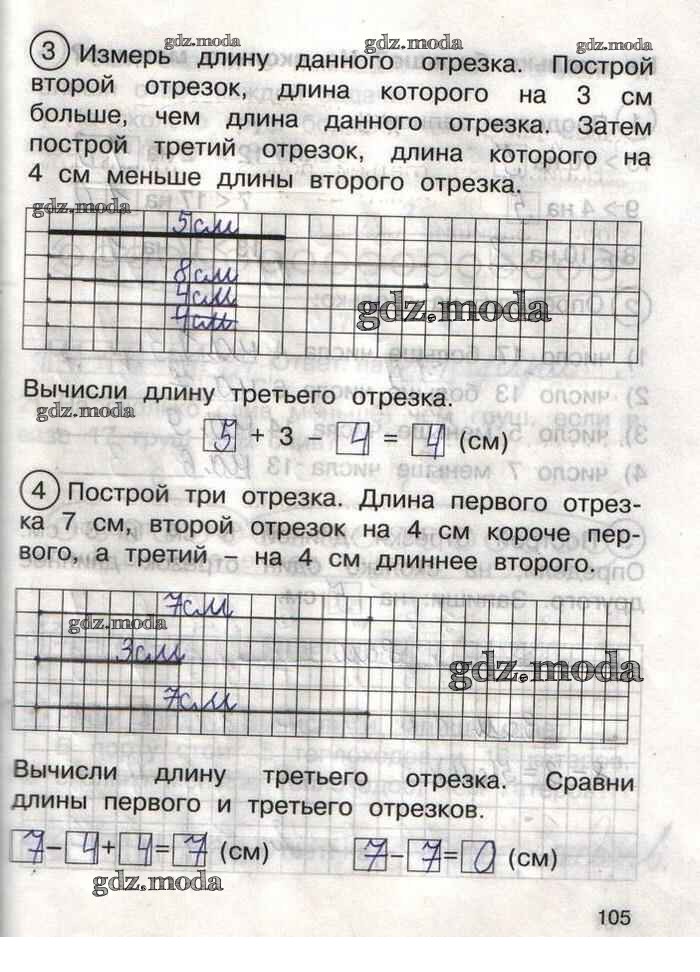 gdz.moda gdz.moda gdz.moda
3 Измерь длину данного отрезка. Построй
второй отрезок, длина которого на 3 см
больше, чем длина данного отрезка. Затем
построй третий отрезок, длина которого на
4 см меньше длины второго отрезка.
gdz.moda
5 см
8 см
4 см
4 см
gdz.moda
Вычисли длину третьего отрезка.
gdz.moda
5 + 3 – 4 = 4 (см)
4 Построй три отрезка. Длина первого отрез-
ка 7 см, второй отрезок на 4 см короче пер-
вого, а третий – на 4 см длиннее второго.
7 см
gdz.moda
3 см
gdz.moda
7 см
Вычисли длину третьего отрезка. Сравни
длины первого и третьего отрезков.
7 – 4 + 4 = 7 (см) 7 – 7 = 0 (см)
gdz.moda
105
gdz.moda